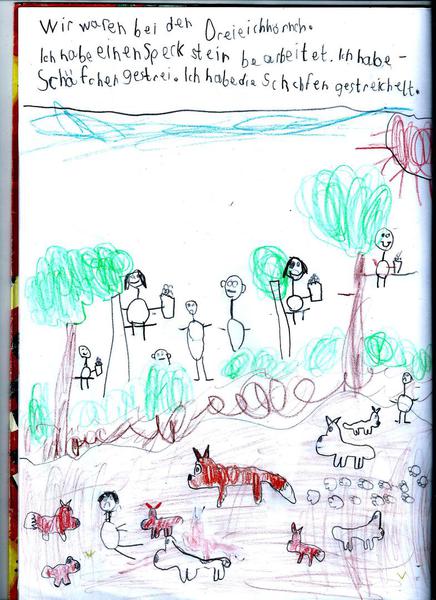 Wir waren bei den Dreieichhörnch.
Ich habe einen Speck stein bearbeitet. Ich habe -
Schäfchen gestrei. Ich habe die Schafen gestreichelt.